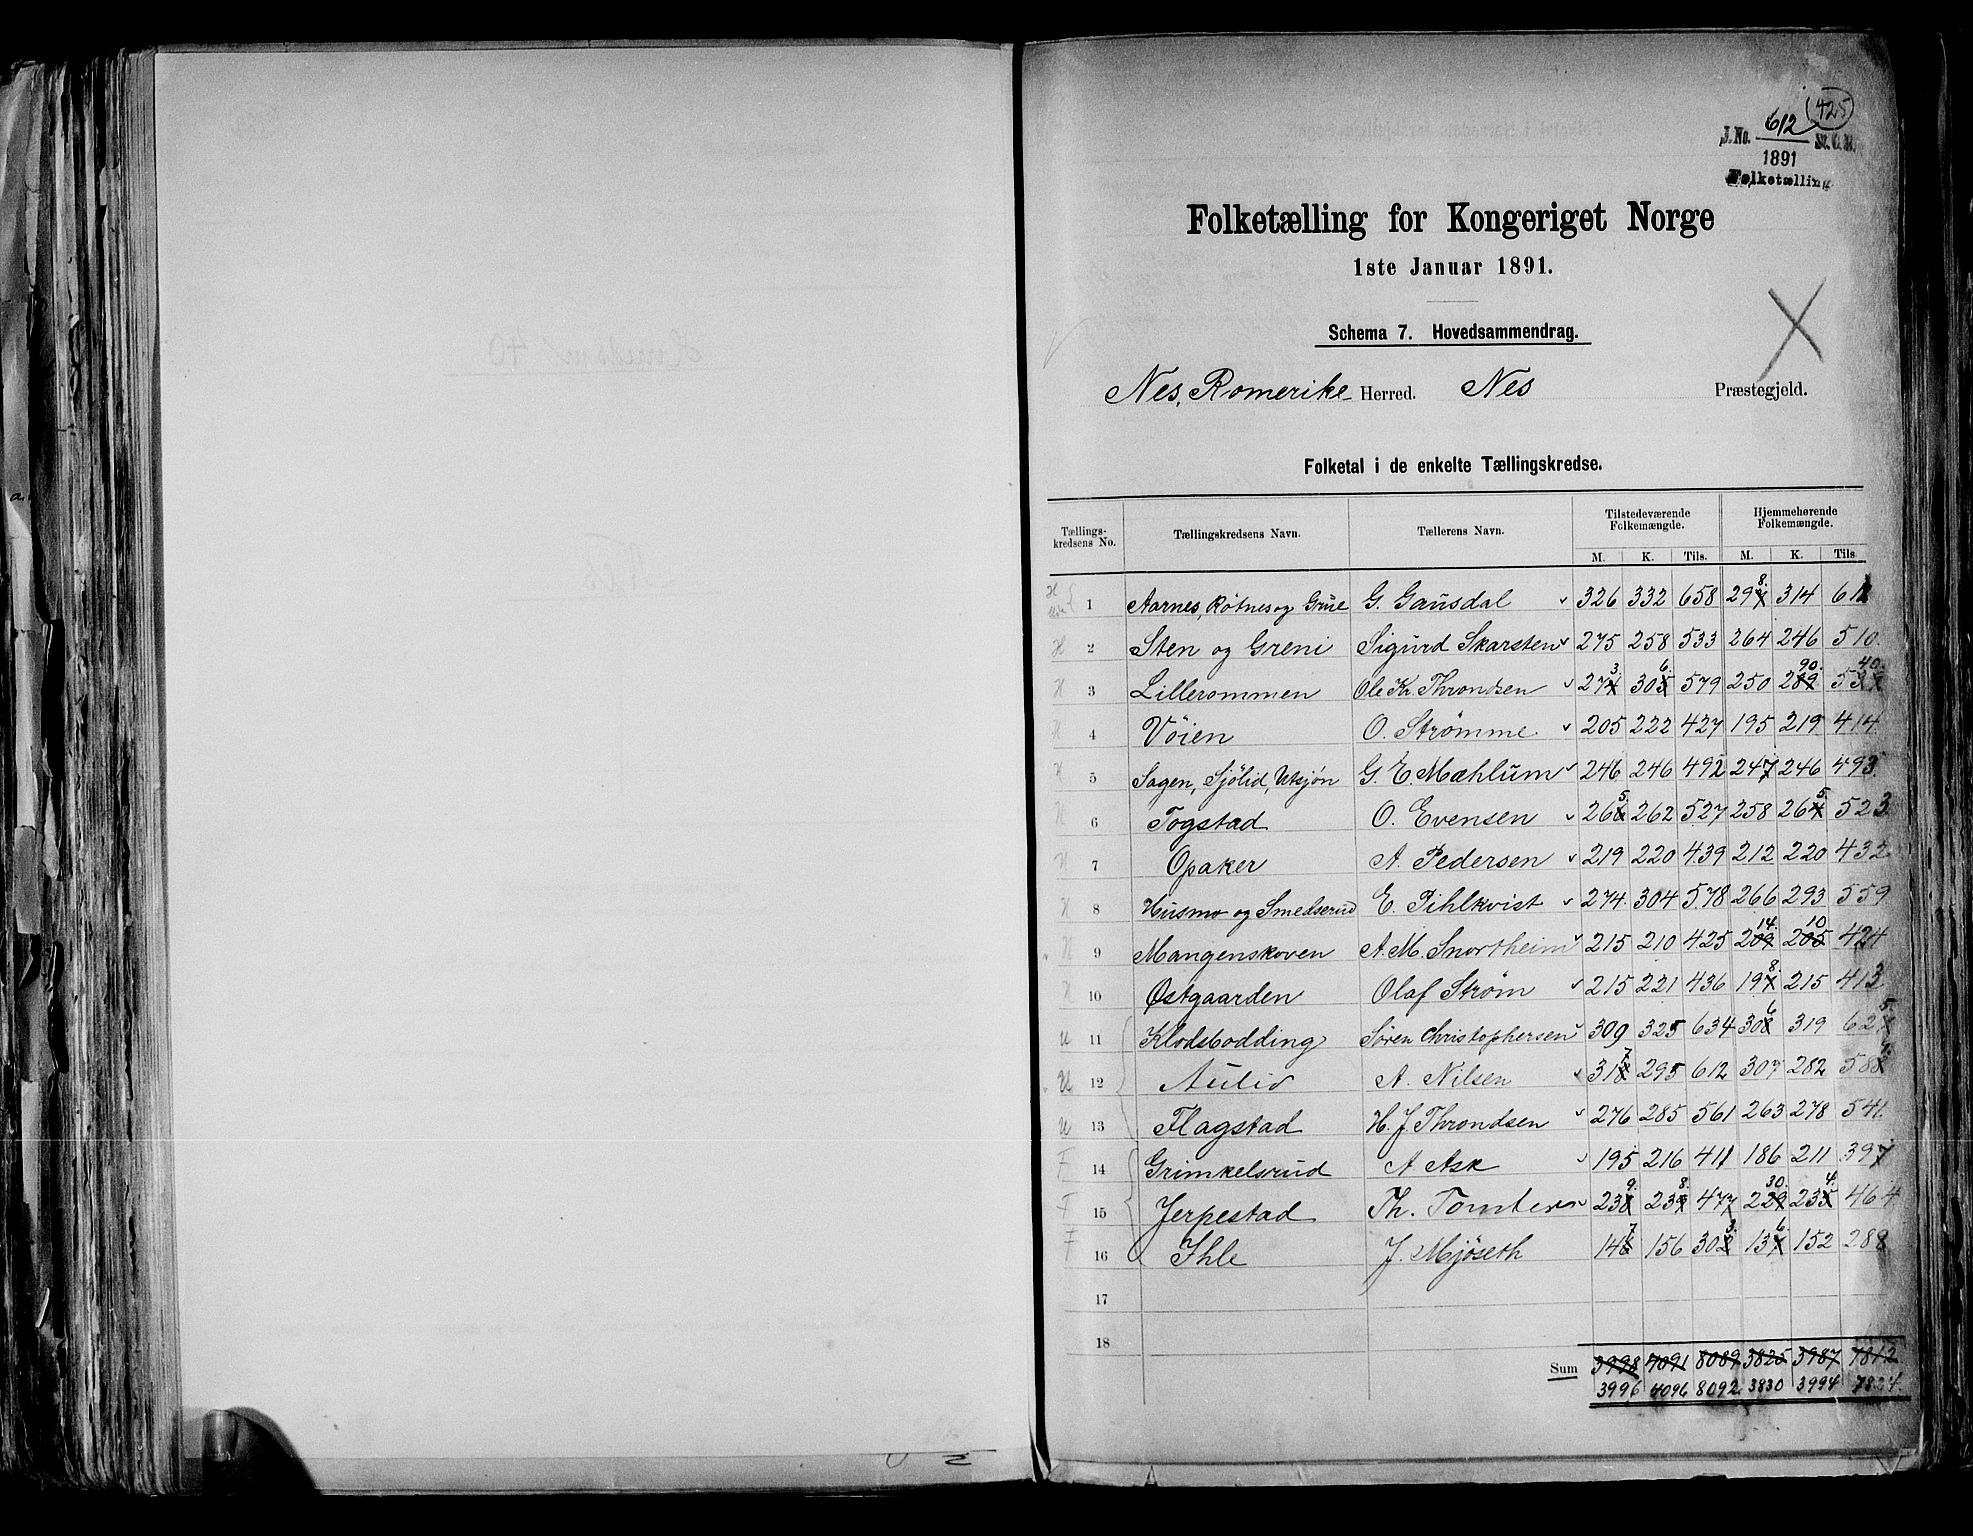 (425)
J. No. 612 St. C. B.
1891
Folketælling
Folketælling for Kongeriget Norge
1ste Januar 1891.
Schema 7. Hovedsammendrag.
Nes, Romerike Herred. Nes Præstegjeld.
Folketal i de enkelte Tællingskredse.
Tællings-kredsens No. Tællingskredsens Navn. Tællerens Navn. Tilstedeværende Folkemængde. Hjemmehørende Folkemængde.
M. K. Tils. M. K. Tils.
1 Aarnes, Rötnes og Grue G. Gausdal 326 332 658 298 314 612
H 2 Sten og Greni Sigurd Skarsten 275 258 533 264 246 510
H 3 Lillerommen Ole Kr Throndsen 273 306 579 250 290 540
H 4 Vöien O. Strømme 205 222 427 195 219 414
H 5 Sagen, Sjölid, Utsjön G. E. Mæhlum 246 246 492 247 246 493
H 6 Togstad O. Evensen 265 262 527 258 265 523
H 7 Opaker A. Pedersen 219 220 439 212 220 432
H 8 Husmo og Smedserud E. Pihlkvist 274 304 578 266 293 559
H 9 Mangenskoven A. M. Snortheim 215 210 425 214 210 424
H 10 Østgaarden Olaf Strøm 215 221 436 198 215 413
U 11 Klodsbodding Søren Christophersen 309 325 634 306 319 625
U 12 Aulid A. Nilsen 317 295 612 307 282 589
U 13 Flagstad H. J Throndsen 276 285 561 263 278 541
F 14 Grimkelsrud A Ask 195 216 411 186 211 397
F 15 Jerpestad Th. Tomter 239 238 477 230 234 464
F 16 Ihle J. Mjöseth 147 156 303 136 152 288
17
18
Sum 3998 4091 8089 3825 3987 7812
3996 4096 8092 3830 3994 7824